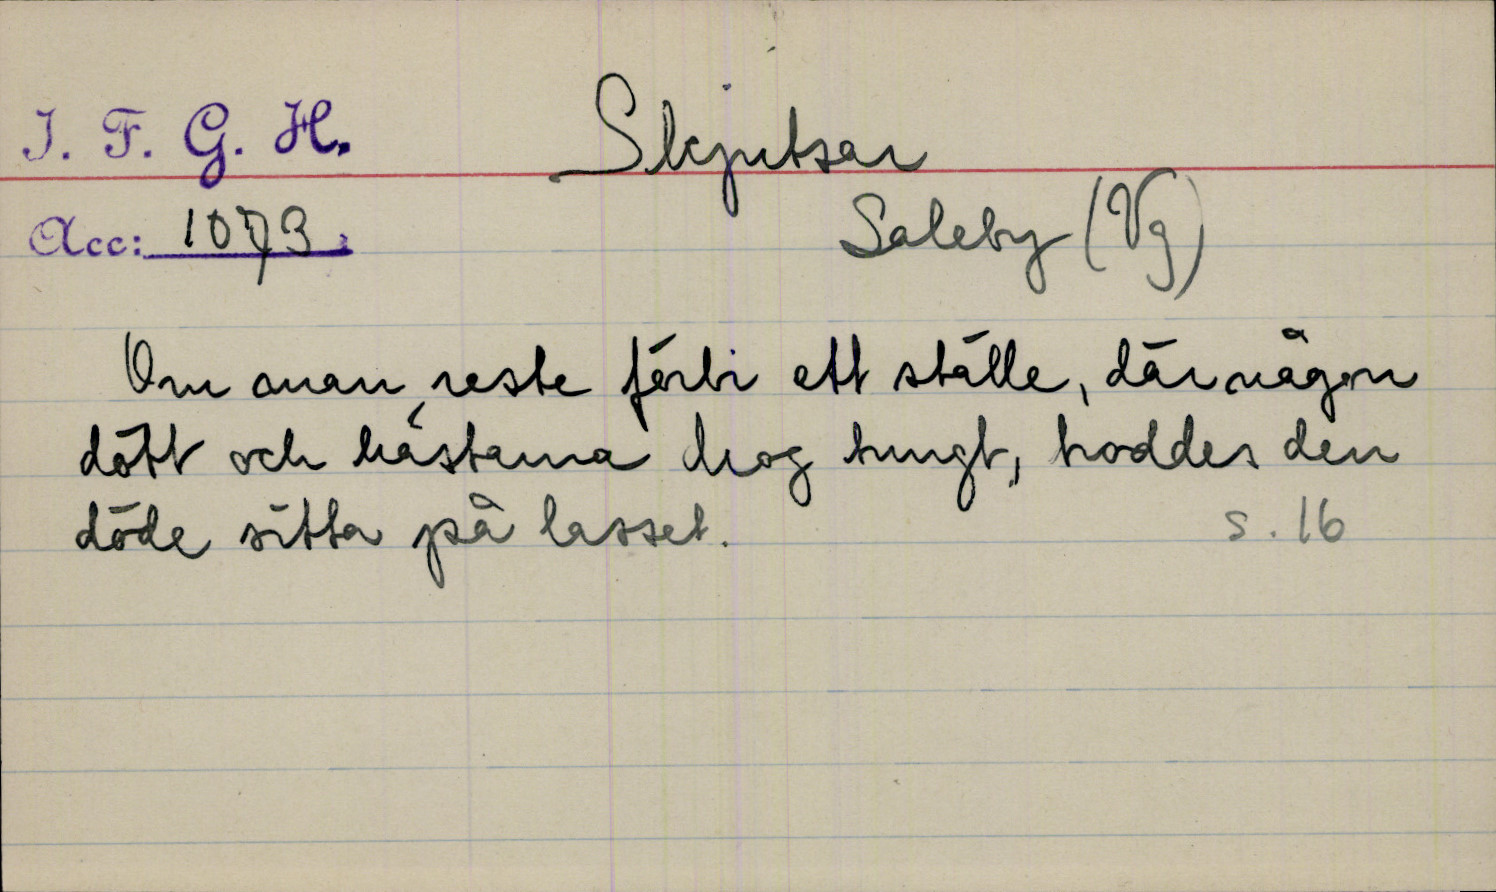 I. F. G. H.
Skjutsar
Acc: 1073
Saleby (Vg)
Om man reste förbi ett ställe, där någon
dött och hästarna drog tungt, troddes den
döde sitta på lasset.
s. 16